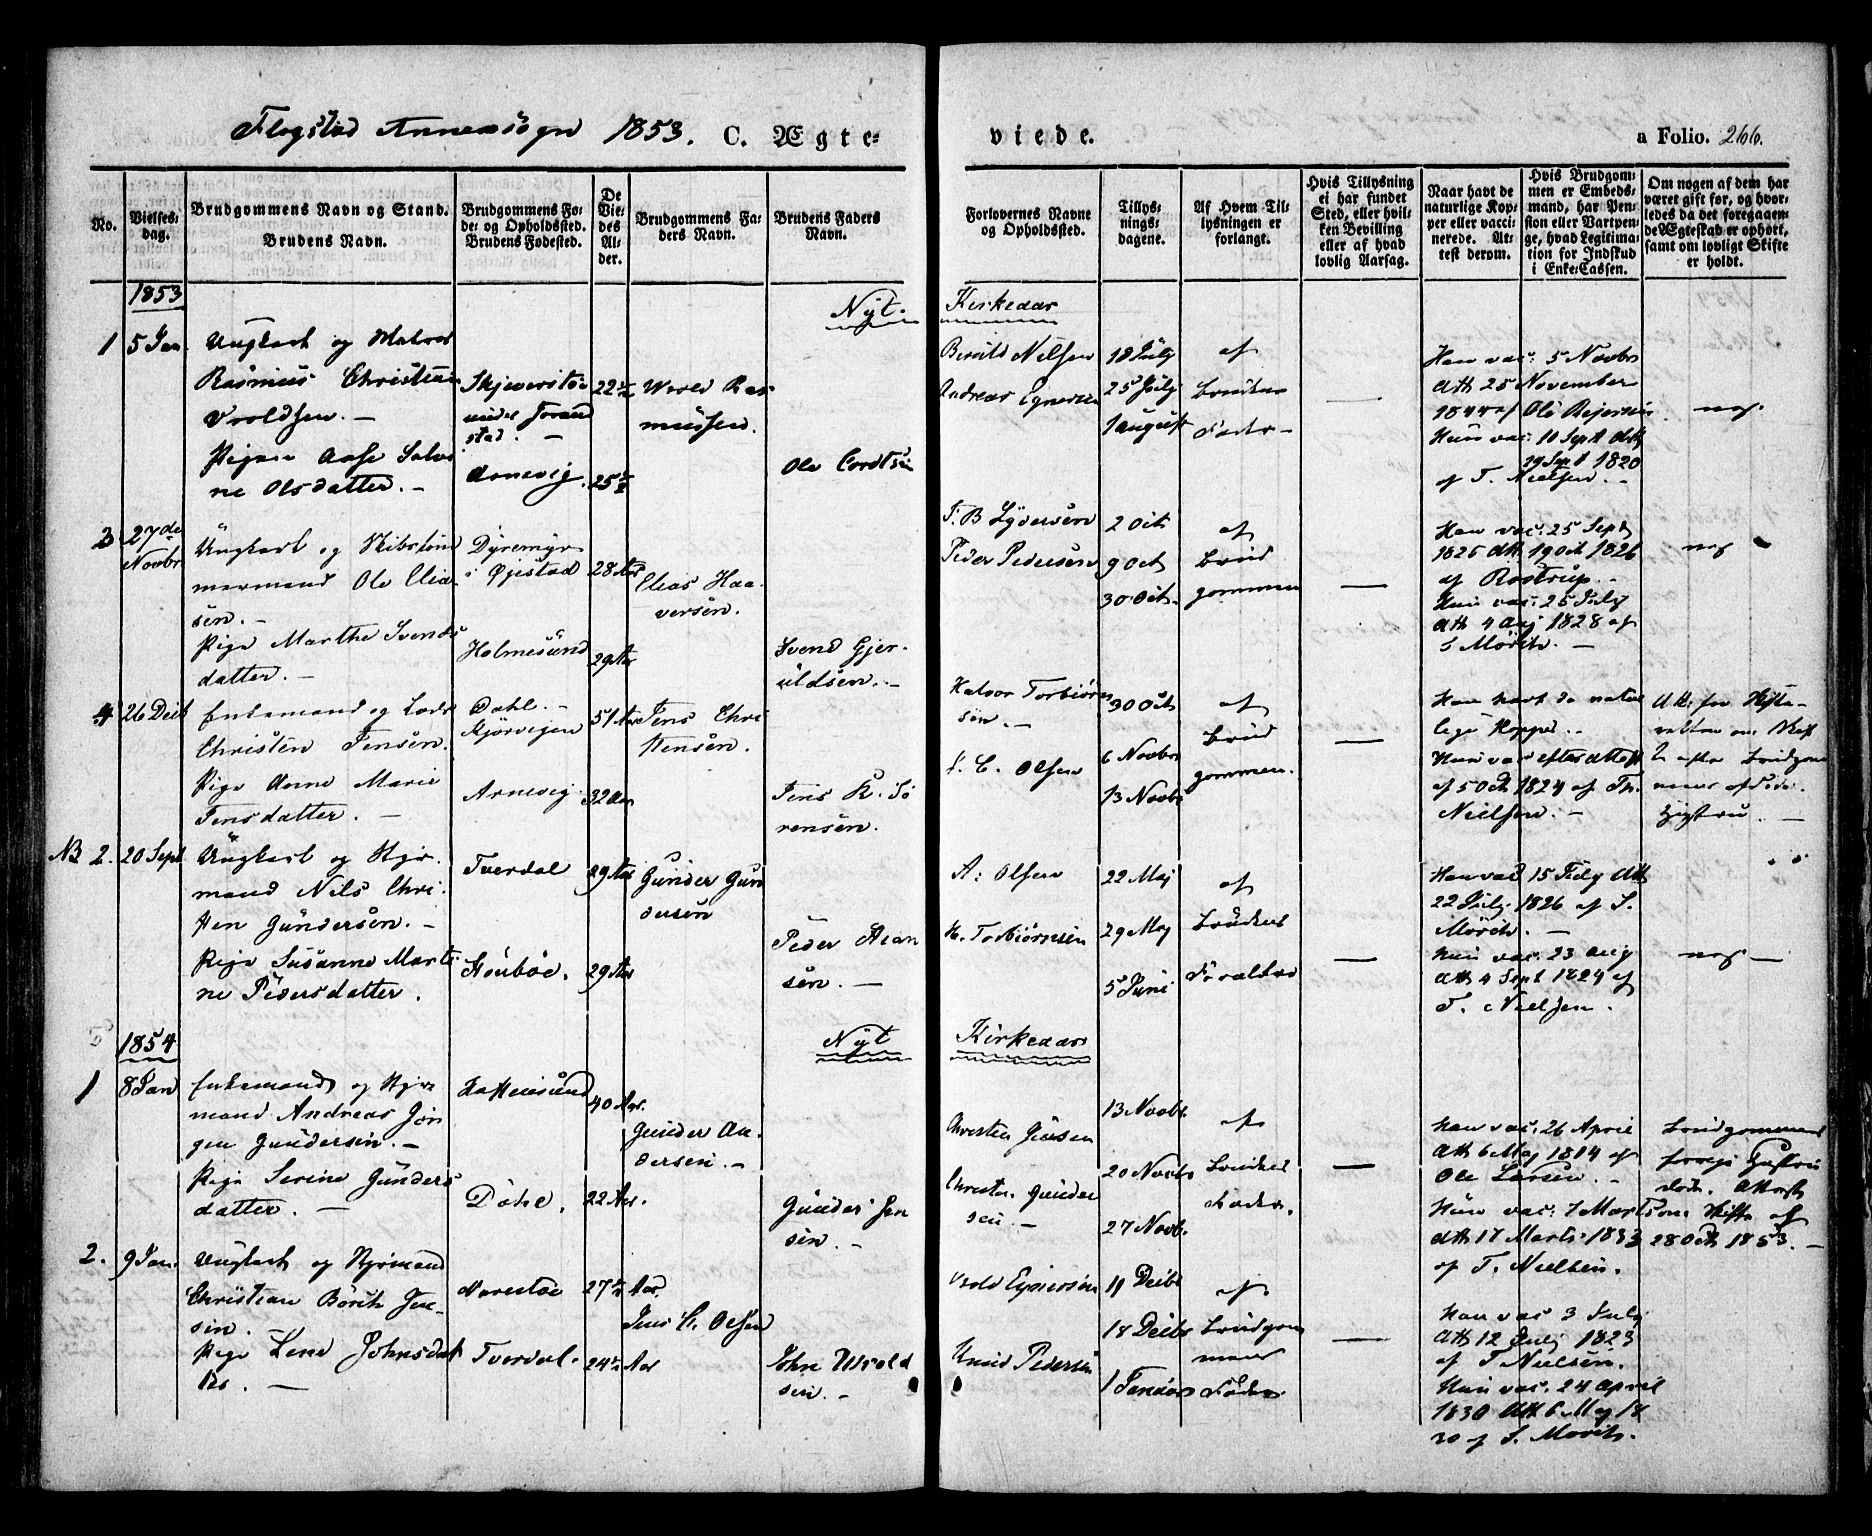 Flogstad Annexsogn 1853. C. Ægte=
viede.
a Folio. 266.
No.
Vielses-
dag.
Brudgommens Navn og Stand.
Brudens Navn.
Brudgommens Fø-
de- og Opholdssted.
Brudens Fødested.
De
Vie-
des
Al-
der.
Brudgommens Fa-
ders Navn.
Brudens Faders
Navn.
Forlovernes Navne
og Opholdssted.
Tillys-
nings-
dagene.
Af Hvem Til-
lysningen er
forlangt.
Hvis Tillysning
ei har fundet
Sted, eller hvil-
ken Bevilling
eller af hvad
lovlig Aarsag.
Naar havt de
naturlige Kop-
per eller vacci-
nerede. At-
test derom.
Hvis Brudgom-
men er Embeds-
mand, har Pen-
sion eller Vartpen-
ge, hvad Legitima-
tion for Indskud
i Enke-Cassen.
Om nogen af dem har
været gift før, og hvor-
ledes da det foregaaen-
de Ægteskab er ophørt,
samt om lovligt Skifte
er holdt.
1853
Nyt. Kirkeaar
1 5 Jan.
Ungkarl og Matros
Rasmus Christian
Vroldsen. —
Pigen Aase Salvi
ne Olsdatter. —
Arnevig.
22½
Wrold Ras
mussen.
Ole
Beruld Nilsen
Andreas Egnersen
18 July
25 July
1 August
af
Brudens
Fader —
Han vac: 5 Novbr
Att 25 November
1844 af Ole Rejersen
Hun vac: 10 Sept Att
29 Sept 1820
af T. Nielsen. —
nej.
3 27de
Novbr
Ungkarl og Skibstøm
mermand Ole Elia
sen. —
Pige Marthe Svends
datter. —
Dyremyr
i Øjestad
Holmesund
28 Aar
29 Aar
Elias Haa-
versen.
Svend Gjer-
uldsen. —
T. B Lydersen
Peder Pedersen
2 Oct
9 Oct
30 Oct.
af
Brud
gommen
Han vac: 25 Sept
1825 Att. 19 Oct 1826
af Rostrup. —
Hun vac: 25 July
Att 4 Aug 1828 af
S Mørch. —
nej
4 26 Decb
Enkemand og Lods
Christen Jensen.
Pige Anne Marie
Jensdatter. —
Dahl. —
Kjørvigen
Arnevig.
51 Aar
32 Aar
Jens Chri
stensen.
Jens K. Sø
rensen.
Halvor Torbiørn
sen. —
C. Olsen
30 Oct
6 Novbr
13 Novbr
af
Brud
gommen.
Han havt de natur
lige Kopper. —
Hun vac efter Attest
af 5 Oct 1824 af Th.
Nielsen. —
NB 2. 20 Sept
Ungkarl og Styr
mand Nils Chri
sten Gundersen. —
Pige Susanne Marti
ne Pedersdatter.
Tverdal
Stoubøe.
29 Aar
29 Aar
Gunder Gun
dersen
Peder
sen. —
A: Olsen
H. Torbiørnsen
22 Maj
29 Maj
5 Juni
af
Brudens
Forældre
Han vac 15 July Att
22 July 1826 af S.
Mørch. —
Hun vac: 23 Aug
Att 4 Sept 1824 af
T. Nielsen.
nej —
1854
Nyt Kirkeaar
1 8 Jan
Enkemand og Styr
mand Andreas Jør
gen Gundersen. —
Pige Serine Gunders
datter. —
Dahl.
40 Aar.
22 Aar.
Gunder An
dersen. —
Gunder Jen
sen. —
Christen Jensen
Christen Gunder
sen. —
13 Novbr.
20 Novbr
27 Novb.
af
Brudens
Fader.
Han vac: 26 April
Att 6 Maj 1814 af
Ole Larsen. —
Hun vac: 7 Marts
Att 17 Marts 1833
af T. Nielsen.
Brudgommens
forrige Hustru
død. Attest
om Skifte af
28 Oct 1853. —
2. 9 Jan.
Ungkarl og Styrmand
Christian Børith Jen-
sen.
Pige Lene Johnsdat
ter. —
Narestøe
Tverdal.
27½ Aar
24½ Aar
Jens C. Olsen
John Wrold
sen. —
Vrold Egnersen
Knud Pedersen
11 Decbr
18 Decbr
1 Januar
af
Brudgom
mens
Fader
Han vac 3 July
Att 12 July 1823
af T Nielsen.
Hun vac: 24 April
1830 Att 6 Maj 18
30 af S. Mørch.